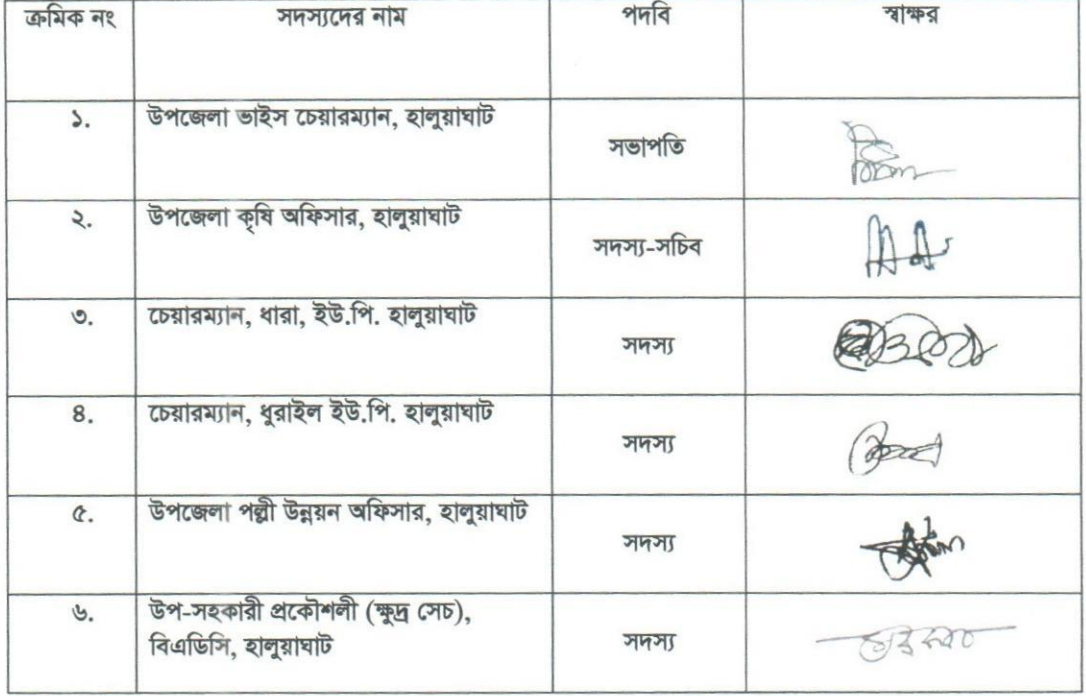 ক্রমিক নং সদস্যদের নাম পদবি স্বাক্ষর
১. উপজেলা ভাইস চেয়ারম্যান, হালুয়াঘাট সভাপতি
২. উপজেলা কৃষি অফিসার, হালুয়াঘাট সদস্য-সচিব
৩. চেয়ারম্যান, ধারা, ইউ.পি. হালুয়াঘাট সদস্য
৪. চেয়ারম্যান, ধুরাইল ইউ.পি. হালুয়াঘাট সদস্য
৫. উপজেলা পল্লী উন্নয়ন অফিসার, হালুয়াঘাট সদস্য
৬. উপ-সহকারী প্রকৌশলী (ক্ষুদ্র সেচ),
বিএডিসি, হালুয়াঘাট সদস্য